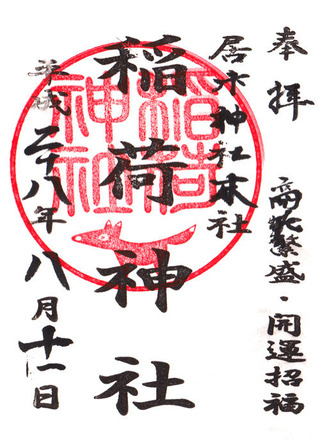 奉拝
商売繁盛・開運招福
居木神社末社
稲荷神社
平成二十八年八月十一日
稲荷
神社